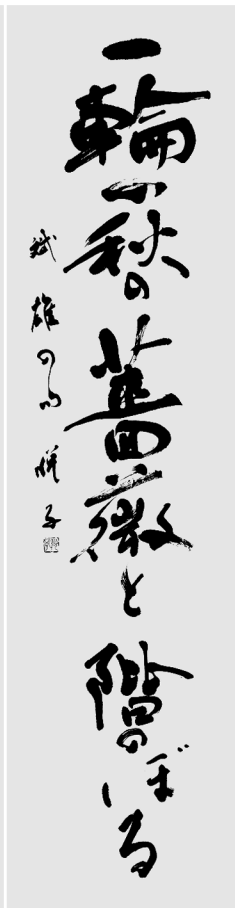 一輪の秋の薔薇と階のぼる
斌雄の句 悦子